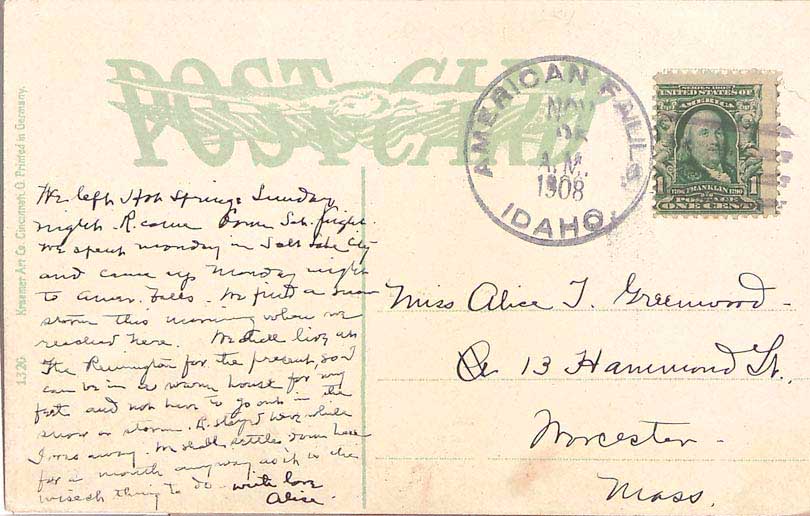 POST CARD
AMERICAN FALLS,
NOV
A.M.
1908
IDAHO.
SERIES 1902
UNITED STATES OF
AMERICA
1 FRANKLIN 1
POSTAGE
ONE CENT
1326 Kraemer Art Co. Cincinnati, O. Printed in Germany.
We left Hot Springs Sunday
night. R. came down Sat. night.
We spent monday in Salt Lake City
and came up Monday night
to Amer. Falls. We find a snow
storm this morning when we
reached here. We shall live at
The Remington for the present, so I
can be in a warm house for my
feet and not have to go out in the
snow or storm. R. stayed here while
I was away. We shall settle down here
for a month anyway as it is the
wisest thing to do. with love
Alice.
Miss Alice T. Greenwood -
13 Hammond St.,
Worcester -
Mass.